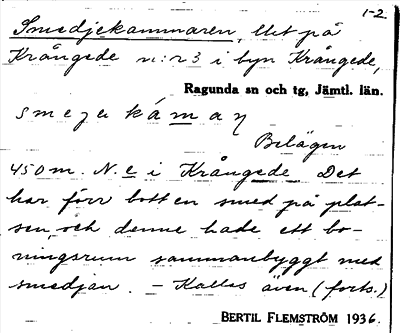 1-2
Smedjekammaren, Utst på
Krångede n:r 3 i byn Krångede,
Ragunda sn och tg, Jämtl. län.
Belägen
450 m. N. e i Krångede. Det
har förr bott en smed på plat-
sen, och denne hade ett bo-
ningsrum sammanbyggt med
smedjan. - Kallas även (forts.)
BERTIL FLEMSTRÖM 1936.